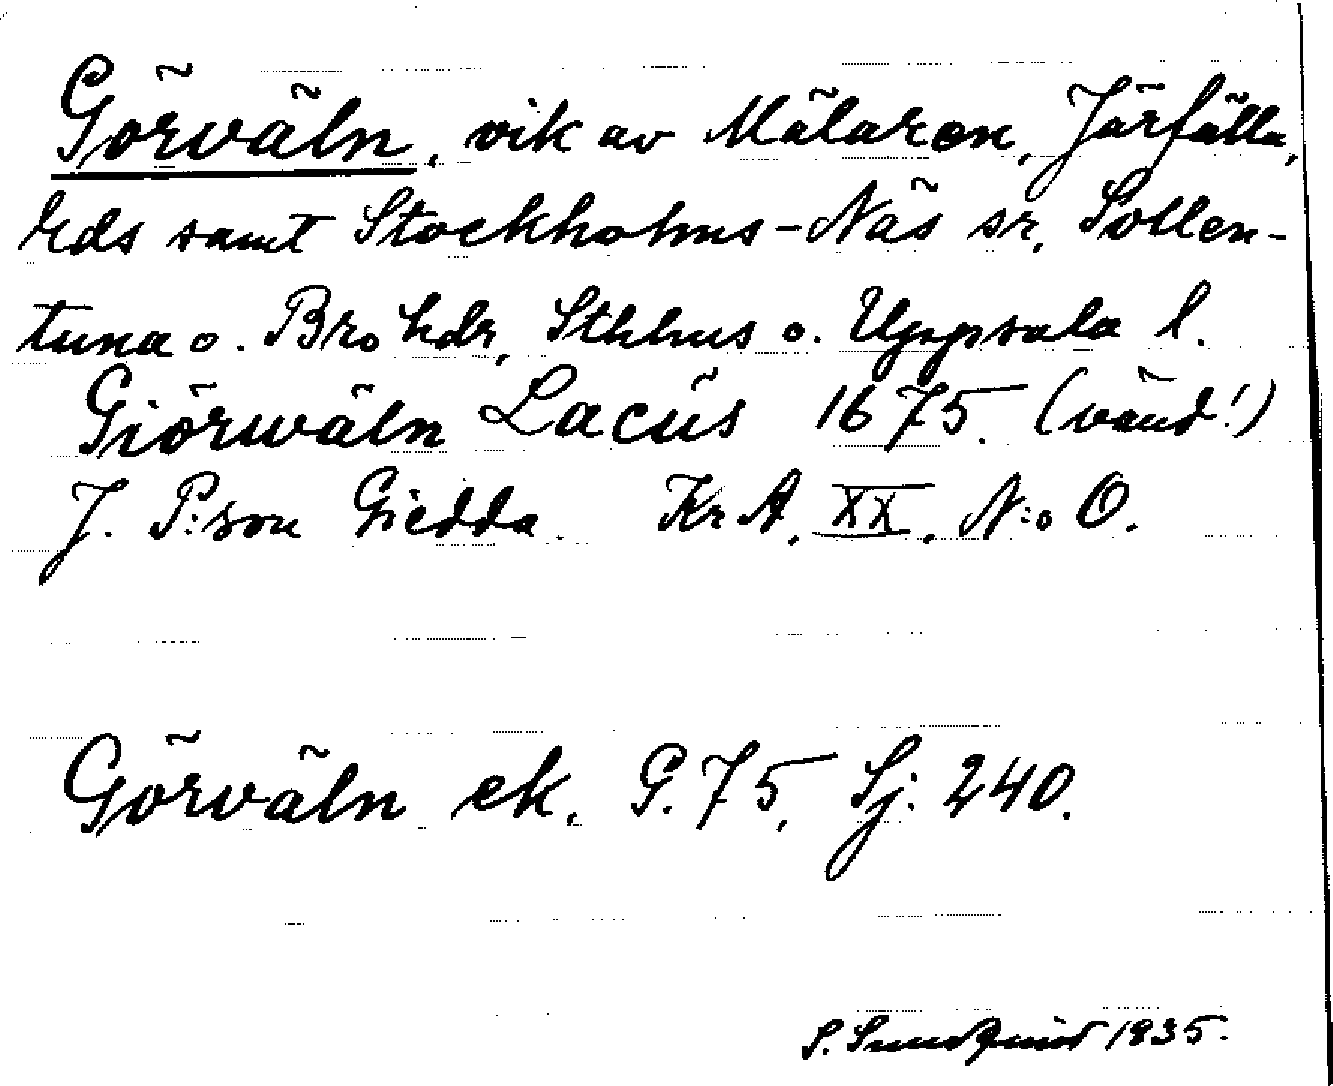 Görväln, vik av Mälaren, Järfälla,
Eds samt Stockholms-Näs sr, Sollen-
tuna o. Bro hdr, Sthlms o. Uppsala l.
Giörwäln Lacus 1675. (vänd!)
J. P:son Giedda. Kr A, XX, N:o O.
Görväln ek. G. 75, Sj: 240.
S. Sundquist 1935.